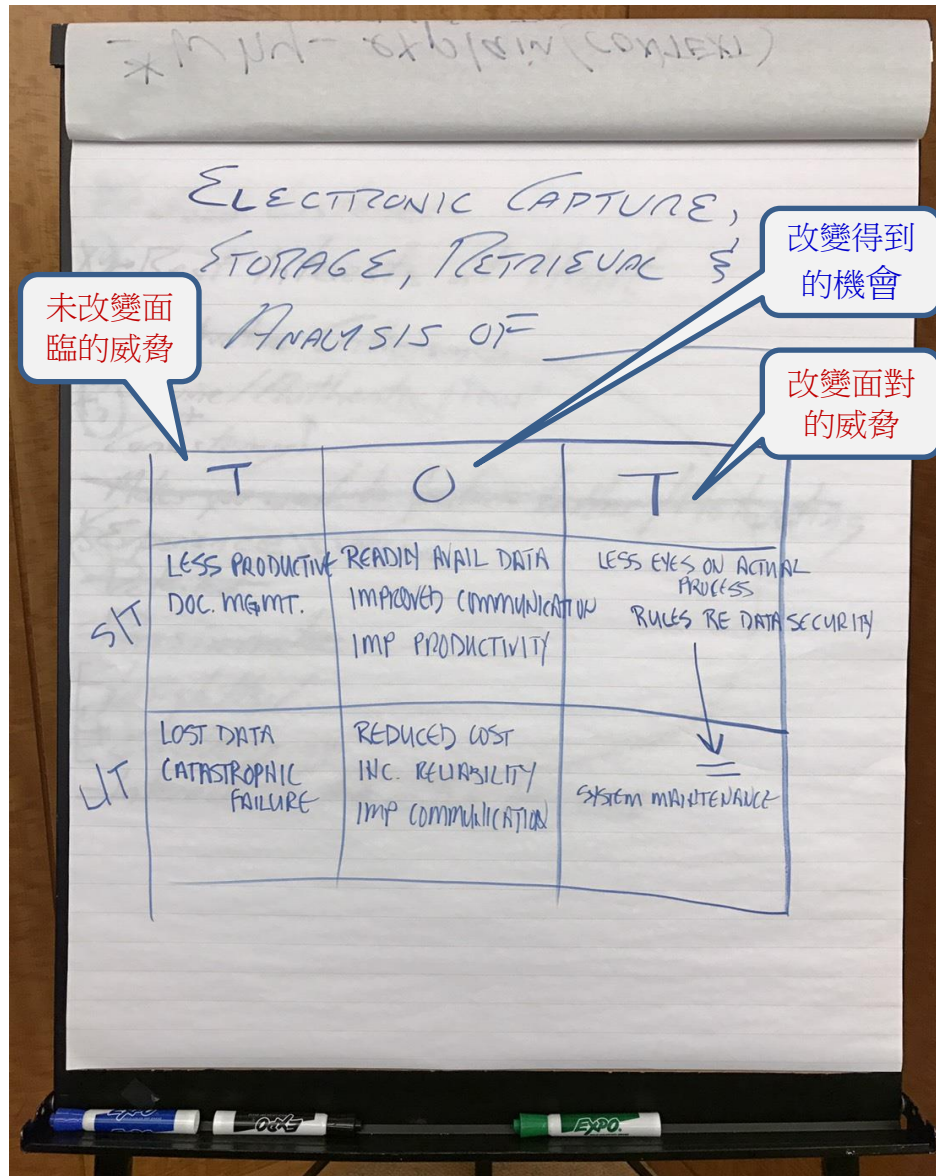 * Why - explain (CONTEXT)
ELECTRONIC CAPTURE,
STORAGE, RETRIEVAL &
ANALYSIS OF
改變得到
的機會
未改變面
臨的威脅
改變面對
的威脅
T
O
T
S/T
LESS PRODUCTIVE
DOC. MGMT.
READILY AVAIL DATA
IMPROVED COMMUNICATION
IMP PRODUCTIVITY
LESS EYES ON ACTUAL
PROCESS
RULES RE DATA SECURITY
L/T
LOST DATA
CATASTROPHIC
FAILURE
REDUCED COST
INC. RELIABILITY
IMP COMMUNICATION
=
SYSTEM MAINTENANCE
EXPO
EXPO
EXPO.